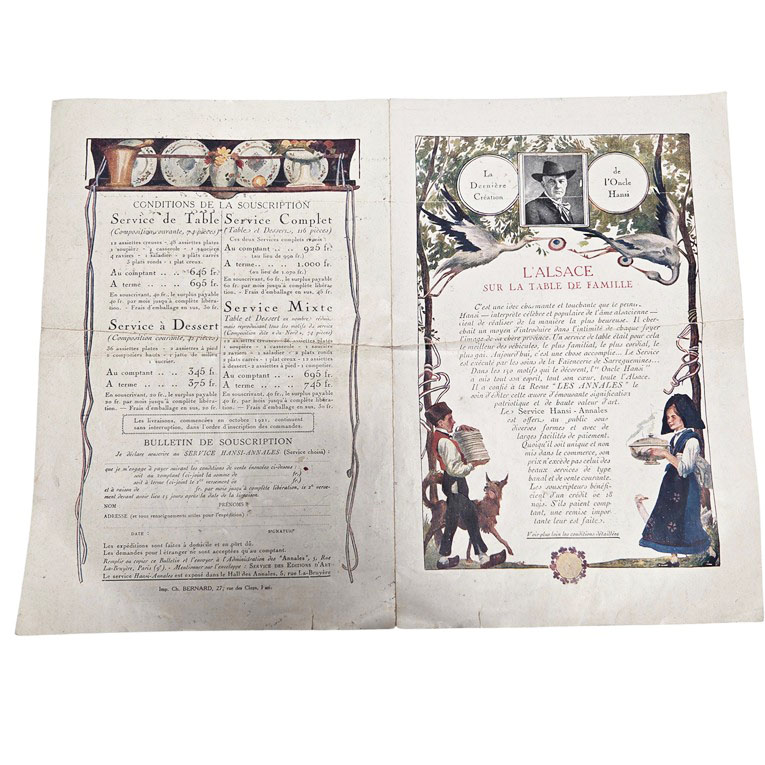 CONDITIONS DE LA SOUSCRIPTION
Service de Table
(Composition courante, 74 pièces)
12 assiettes creuses - 48 assiettes plates
3 plats ronds - 1 plat creux.
Au comptant .. .. 645 fr.
A terme .. .. .. 695 fr.
En souscrivant, 40 fr., le surplus payable
40 fr. par mois jusqu'à complète libéra-
tion. - Frais d'emballage en sus,
Service à Dessert
36 assiettes plates
Au comptant .. .. 345 fr.
A terme .. .. .. 375 fr.
En souscrivant, 20 fr., le surplus payable
20 fr. par mois jusqu'à complète libéra-
tion. - Frais d'emballage en sus, 20 fr.
Service Complet
(Table et Dessert, 116 pièces)
Ces deux Services complets réunis :
Au comptant .. .. 925 fr.
(au lieu de 990 fr.)
A terme.. .. .. 1.000 fr.
(au lieu de 1.070 fr.)
En souscrivant, 60 fr., le surplus payable
60 fr. par mois jusqu'à complète libéra-
tion. - Frais d'emballage en sus,
Service Mixte
Table et Dessert
mais reproduisant tous les motifs du service
Au comptant .. .. 695 fr.
A terme .. .. .. 745 fr.
En souscrivant, 40 fr., le surplus payable
40 fr. par mois jusqu'à complète libéra-
tion. - Frais d'emballage en sus, 30 fr.
Les livraisons, commencées en octobre 1921, continuent
sans interruption, dans l'ordre d'inscription des commandes.
BULLETIN DE SOUSCRIPTION
Je déclare souscrire au SERVICE HANSI-ANNALES (Service choisi) :
que je m'engage à payer suivant les conditions de vente énoncées ci-dessus :
soit au comptant (la somme de fr.)
soit à terme (soit le 1er versement de fr.)
et à raison de fr. par mois jusqu'à complète libération, le 2e verse-
ment devant avoir lieu 15 jours après la date de la livraison.
NOM PRÉNOMS
ADRESSE (et tous renseignements utiles pour l'expédition)
DATE : SIGNATURE
Les expéditions sont faites à domicile et en port dû.
Les demandes pour l'étranger ne sont acceptées qu'au comptant.
Remplir ou copier ce Bulletin et l'envoyer à l'Administration des "Annales", 5, Rue
La-Bruyère, Paris (9e). - Mentionner sur l'enveloppe : SERVICE DES ÉDITIONS D'ART
Le service Hansi-Annales est exposé dans le Hall des Annales, 5, rue La-Bruyère
Imp. Ch. BERNARD, 27, rue des Cloys, Paris
La
Dernière
Création
de
l'Oncle
Hansi
L'ALSACE
SUR LA TABLE DE FAMILLE
C'est une idée charmante et touchante que le
Hansi - interprète célèbre et populaire de l'âme alsacienne -
vient de réaliser de la manière la plus heureuse. Il cher-
chait un moyen d'introduire dans l'intimité de chaque foyer
l'image de sa chère province. Un service de table était pour cela
le meilleur des véhicules, le plus familial, le plus cordial, le
plus gai. Aujourd'hui, c'est une chose accomplie... Le Service
est exécuté par les soins de la Faïencerie de Sarreguemines...
Dans les 150 motifs qui le décorent, l'"Oncle Hansi"
a mis tout son esprit, tout son cœur, toute l'Alsace.
Il a confié à la Revue "LES ANNALES" le
soin d'éditer cette œuvre d'émouvante signification
patriotique et de haute valeur d'art.
Le Service Hansi-Annales
est offert au public sous
diverses formes et avec de
larges facilités de paiement.
Quoiqu'il soit unique et non
mis dans le commerce, son
prix n'excède pas celui des
beaux services de type
banal et de vente courante.
Les souscripteurs bénéfi-
cient d'un crédit de 18
mois. S'ils paient comp-
tant, une remise impor-
tante leur est faite.
Voir plus loin les conditions détaillées